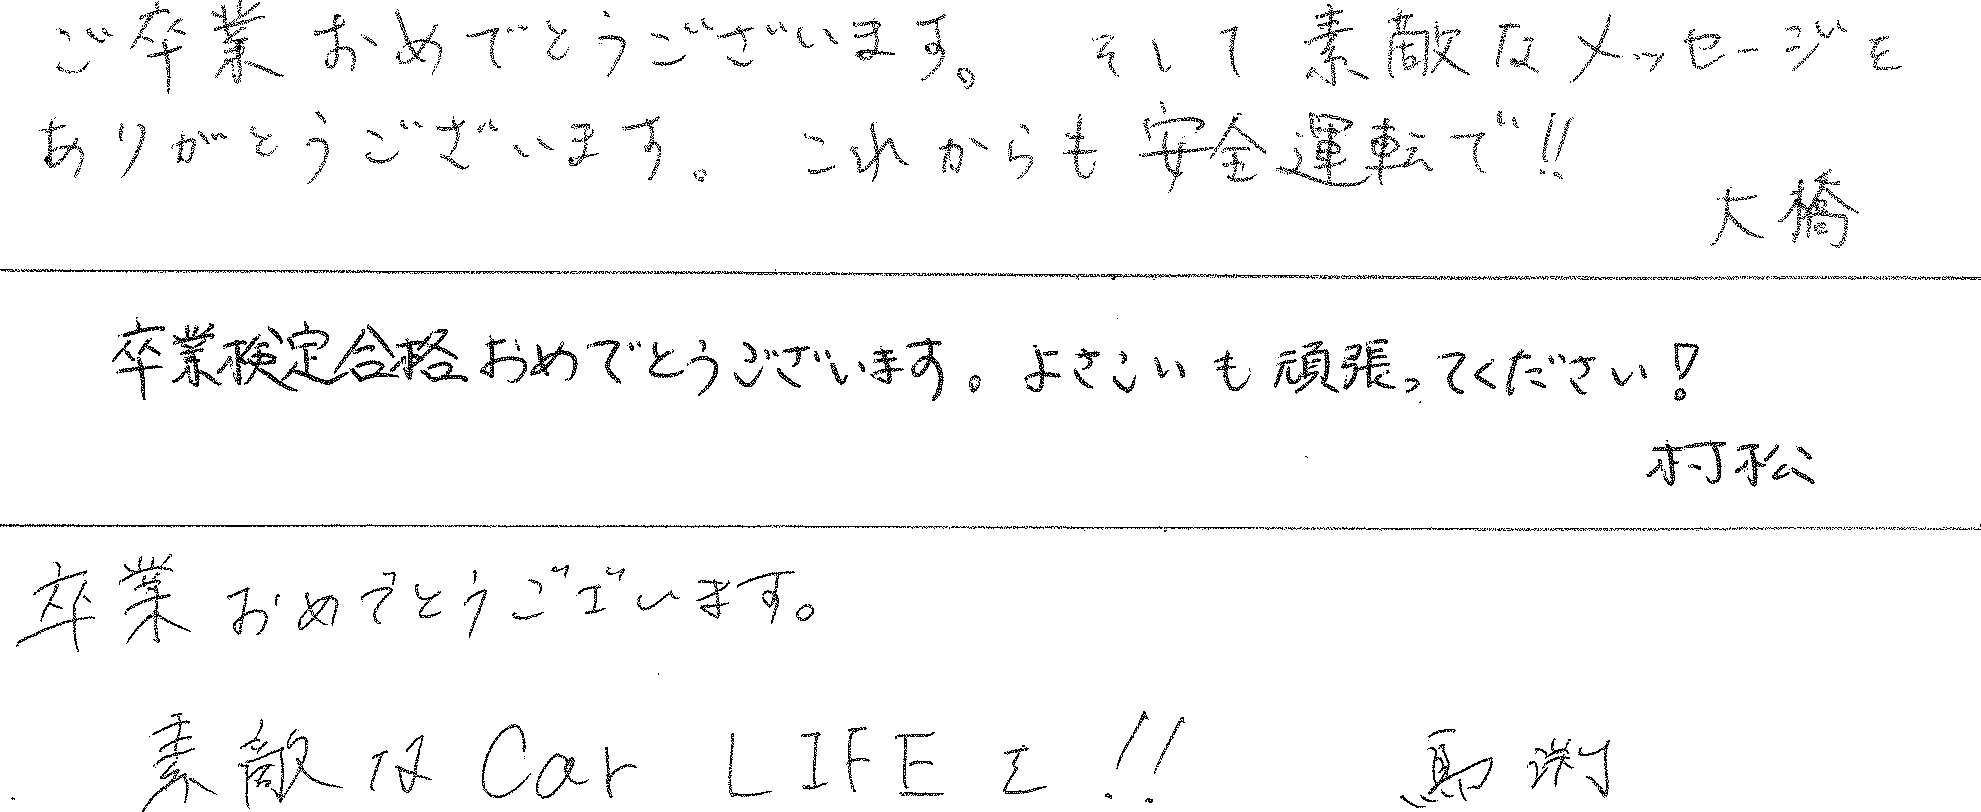 ご卒業おめでとうございます。 そして素敵なメッセージを
ありがとうございます。 これからも安全運転で!!
大橋
卒業検定合格おめでとうございます。よさこいも頑張ってください!
村松
卒業おめでとうございます。
素敵な Car LIFEを!! 馬渕